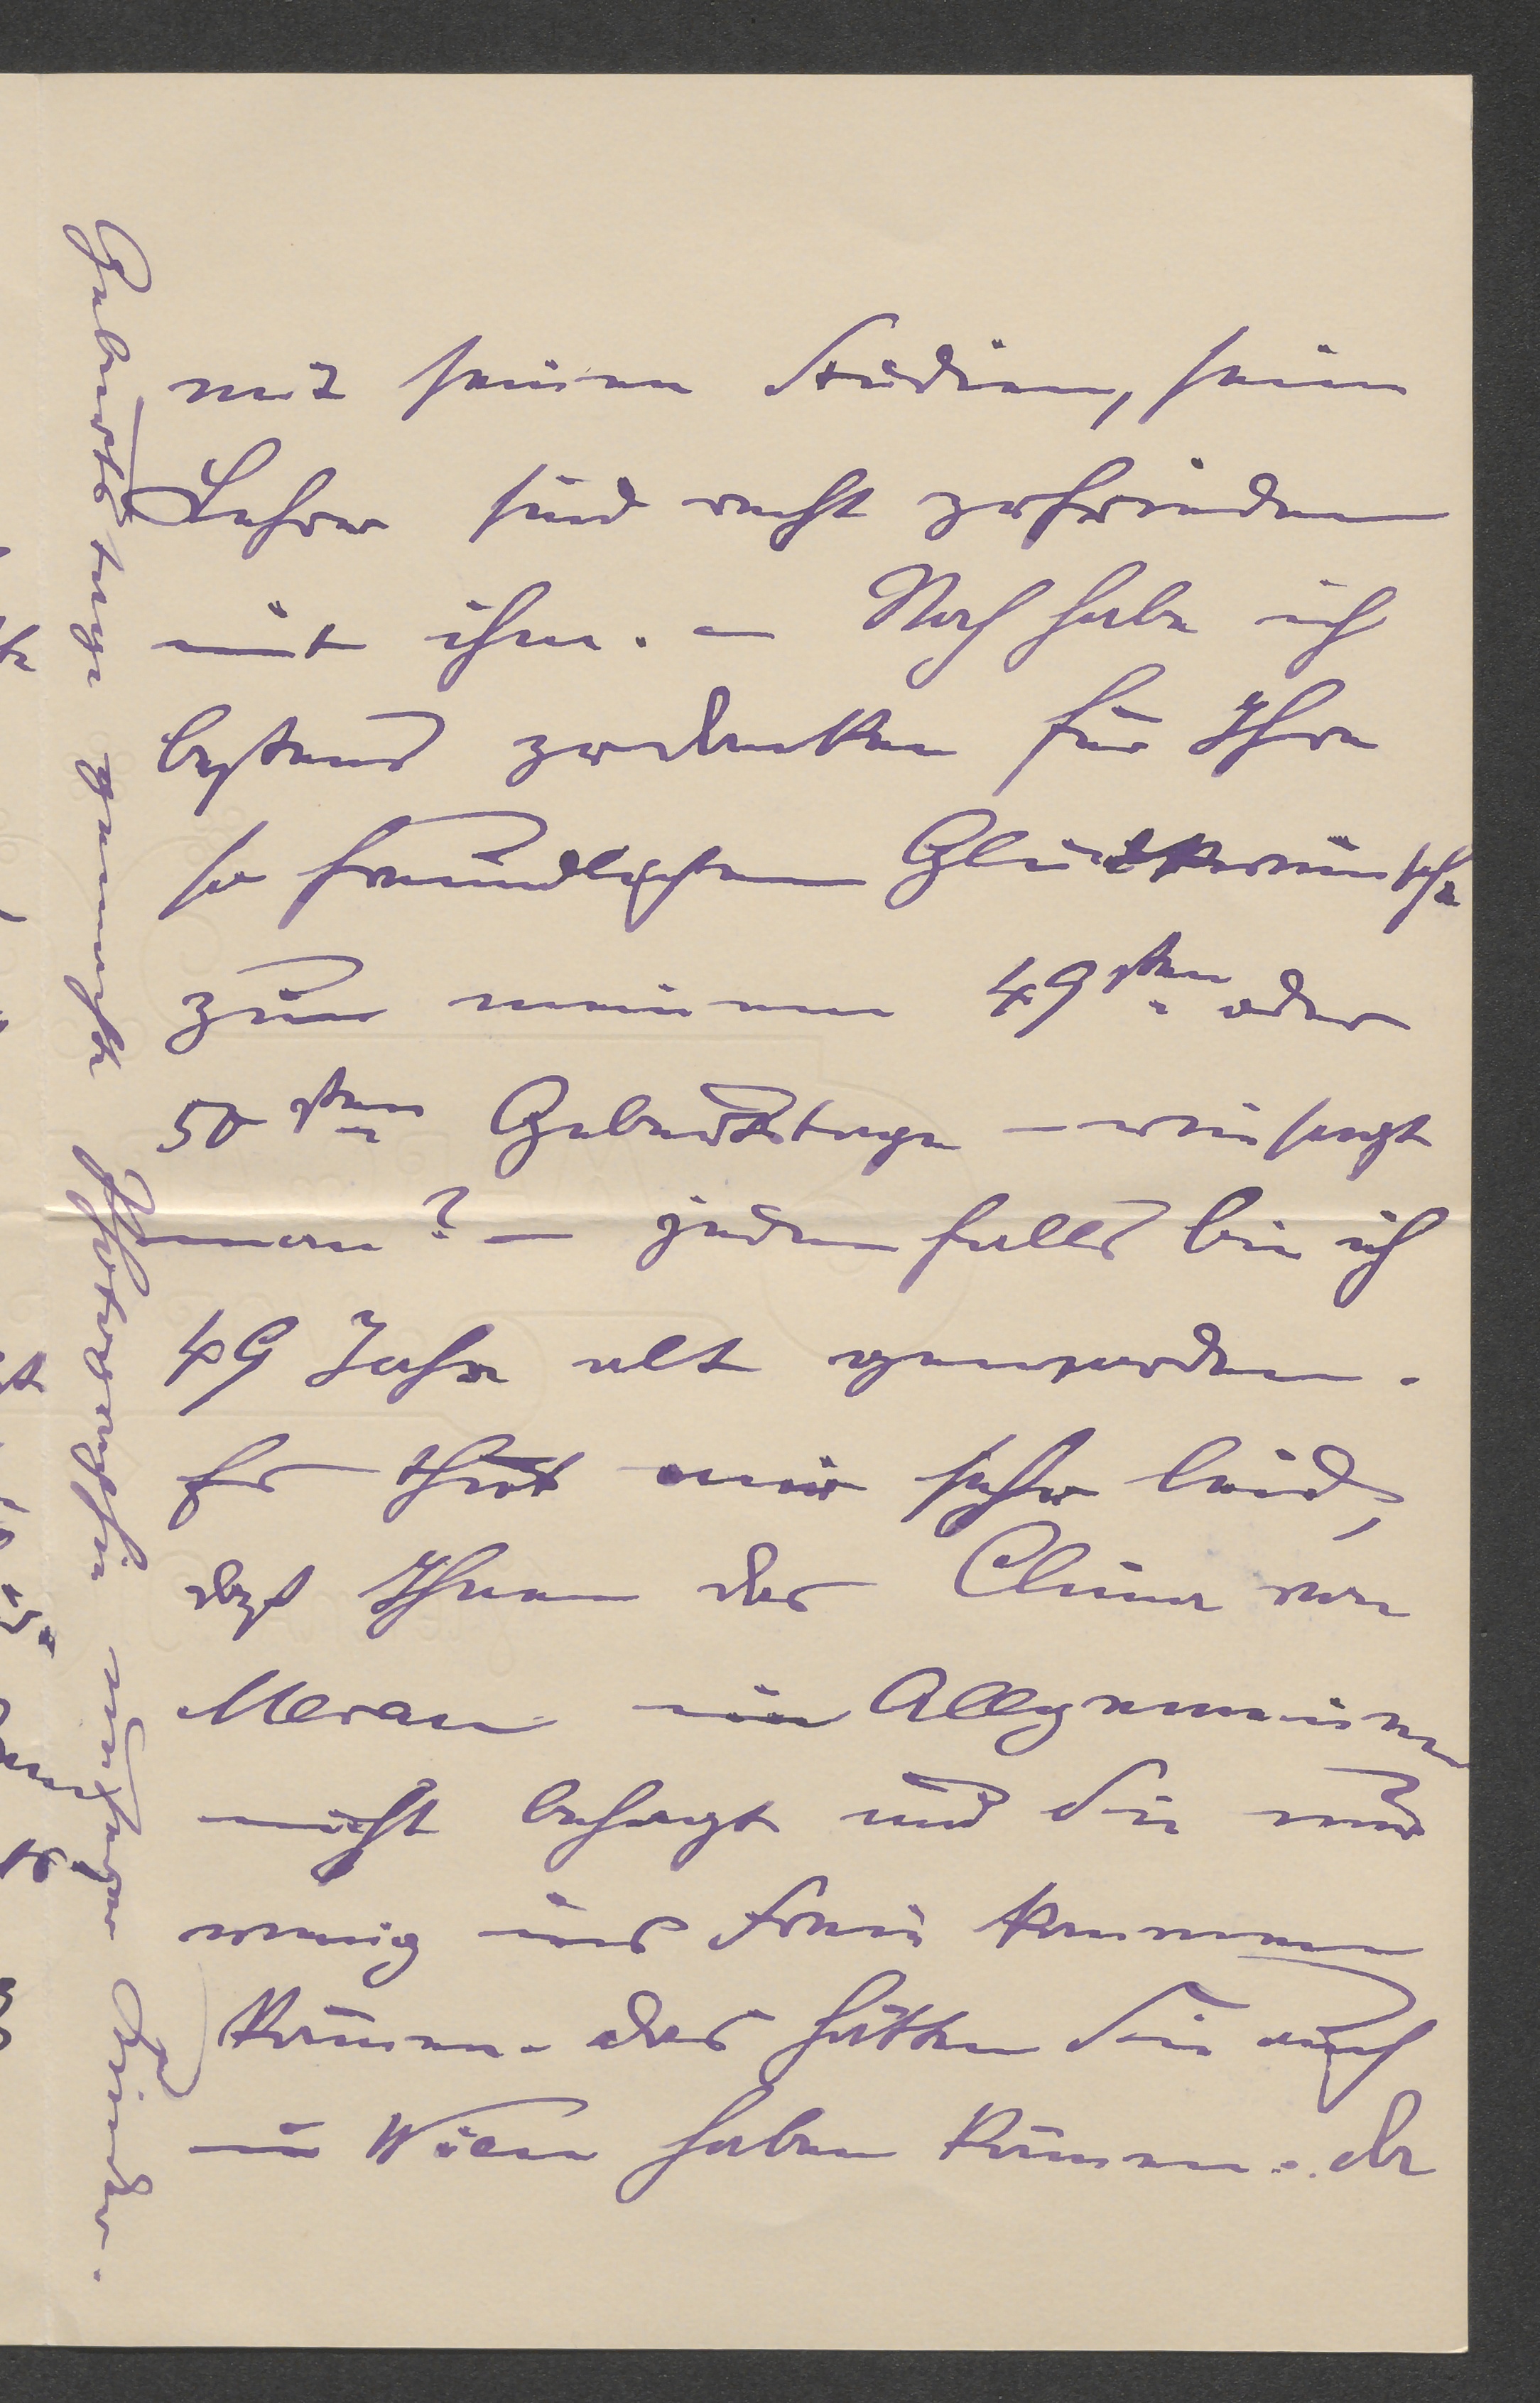 mit seinen Studien, seine
Lehrer sind recht zufrieden
mit ihm. – Noch habe ich
bestens zu danken für Ihre
so freundlichen Glückwünsche
zum meinem 49sten oder
50sten Geburtstage – wie sagt
man? – jedenfalls bin ich
49 Jahre alt geworden.
Es thut mir sehr leid,
daß Ihnen das Clima von
Meran im Allgemeinen
nicht behagt und Sie nur
wenig ins Freie kommen
können. das hätten Sie auch
in Wien haben können. die
Geburtstage gemachte Photographie meiner Kinder.